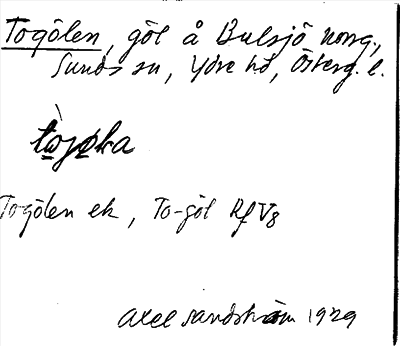 Togölen, göl å Bulsjö norg.,
Sunds sn, Ydre hd, Österg. l.
Togölen ek, To-göl Rf V8
Axel Sandström 1929